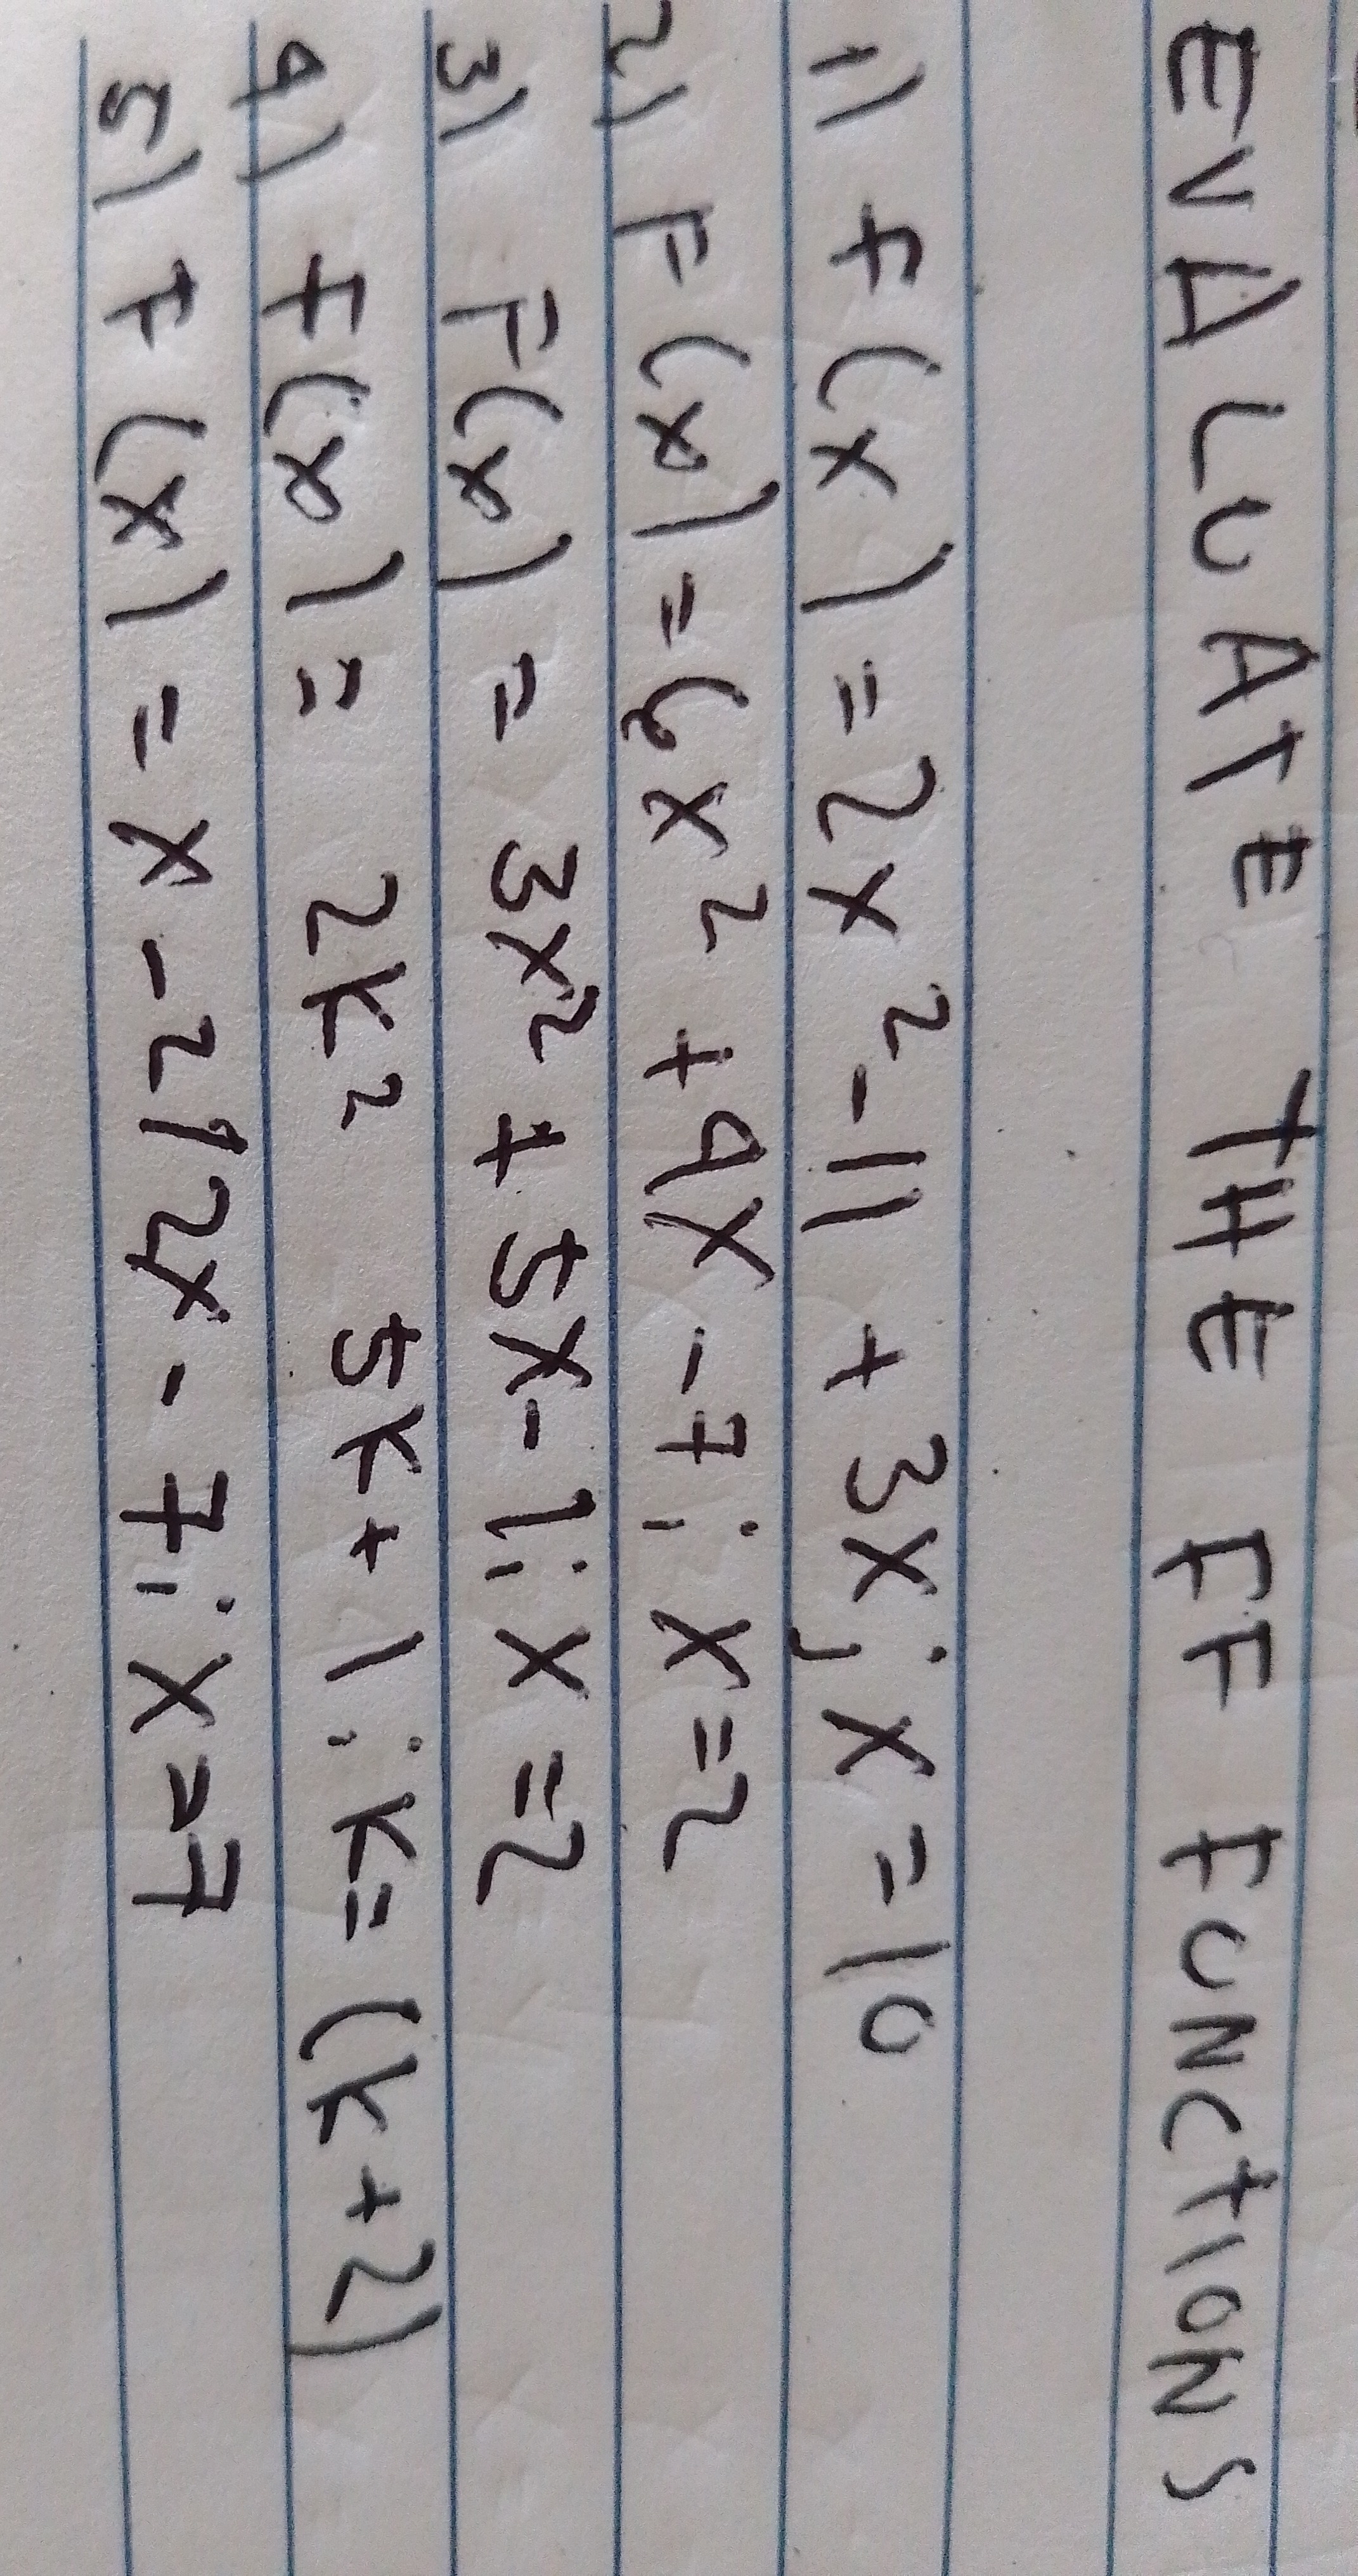 EVALUATE THE FF FUNCTIONS
1) f(x) = 2x² - 11 + 3x; x = 10
2) F(x) = 6x² + 9x - 7; x = 2
3) F(x) = 3x² + 5x - 1; x = 2
4) f(x) = 2k² 5k + 1; k = (k + 2)
5) F(x) = x - 212x - 7; x = 7